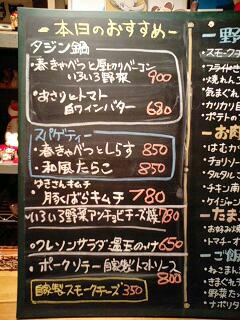 -本日のおすすめ-
タジン鍋
・春きゃべつと厚切りベーコン
いろいろ野菜 900
・あさりとトマト
白ワインバター 680
スパゲティー
・春きゃべつとしらす 850
・和風たらこ 850
ゆきさんキムチ
・豚ばらキムチ 780
・いろいろ野菜アンチョビチーズ焼 780
・クレソンサラダ 温玉のっけ 650
・ポークソテー 自家製トマトソース
800
自家製スモークチーズ 350
-野
・スモーク
・フライドサ
・焼れんこ
・気まぐれ
・カリカリ
・ポテトの
-お肉
・はむカ
・チョリソー
・タルタル
・チキン
・ケイジャン
-たま
・お好み焼
・トマトオ
-ご飯
・ねこまん
・きまぐれ
・野菜た
・ナポリタ